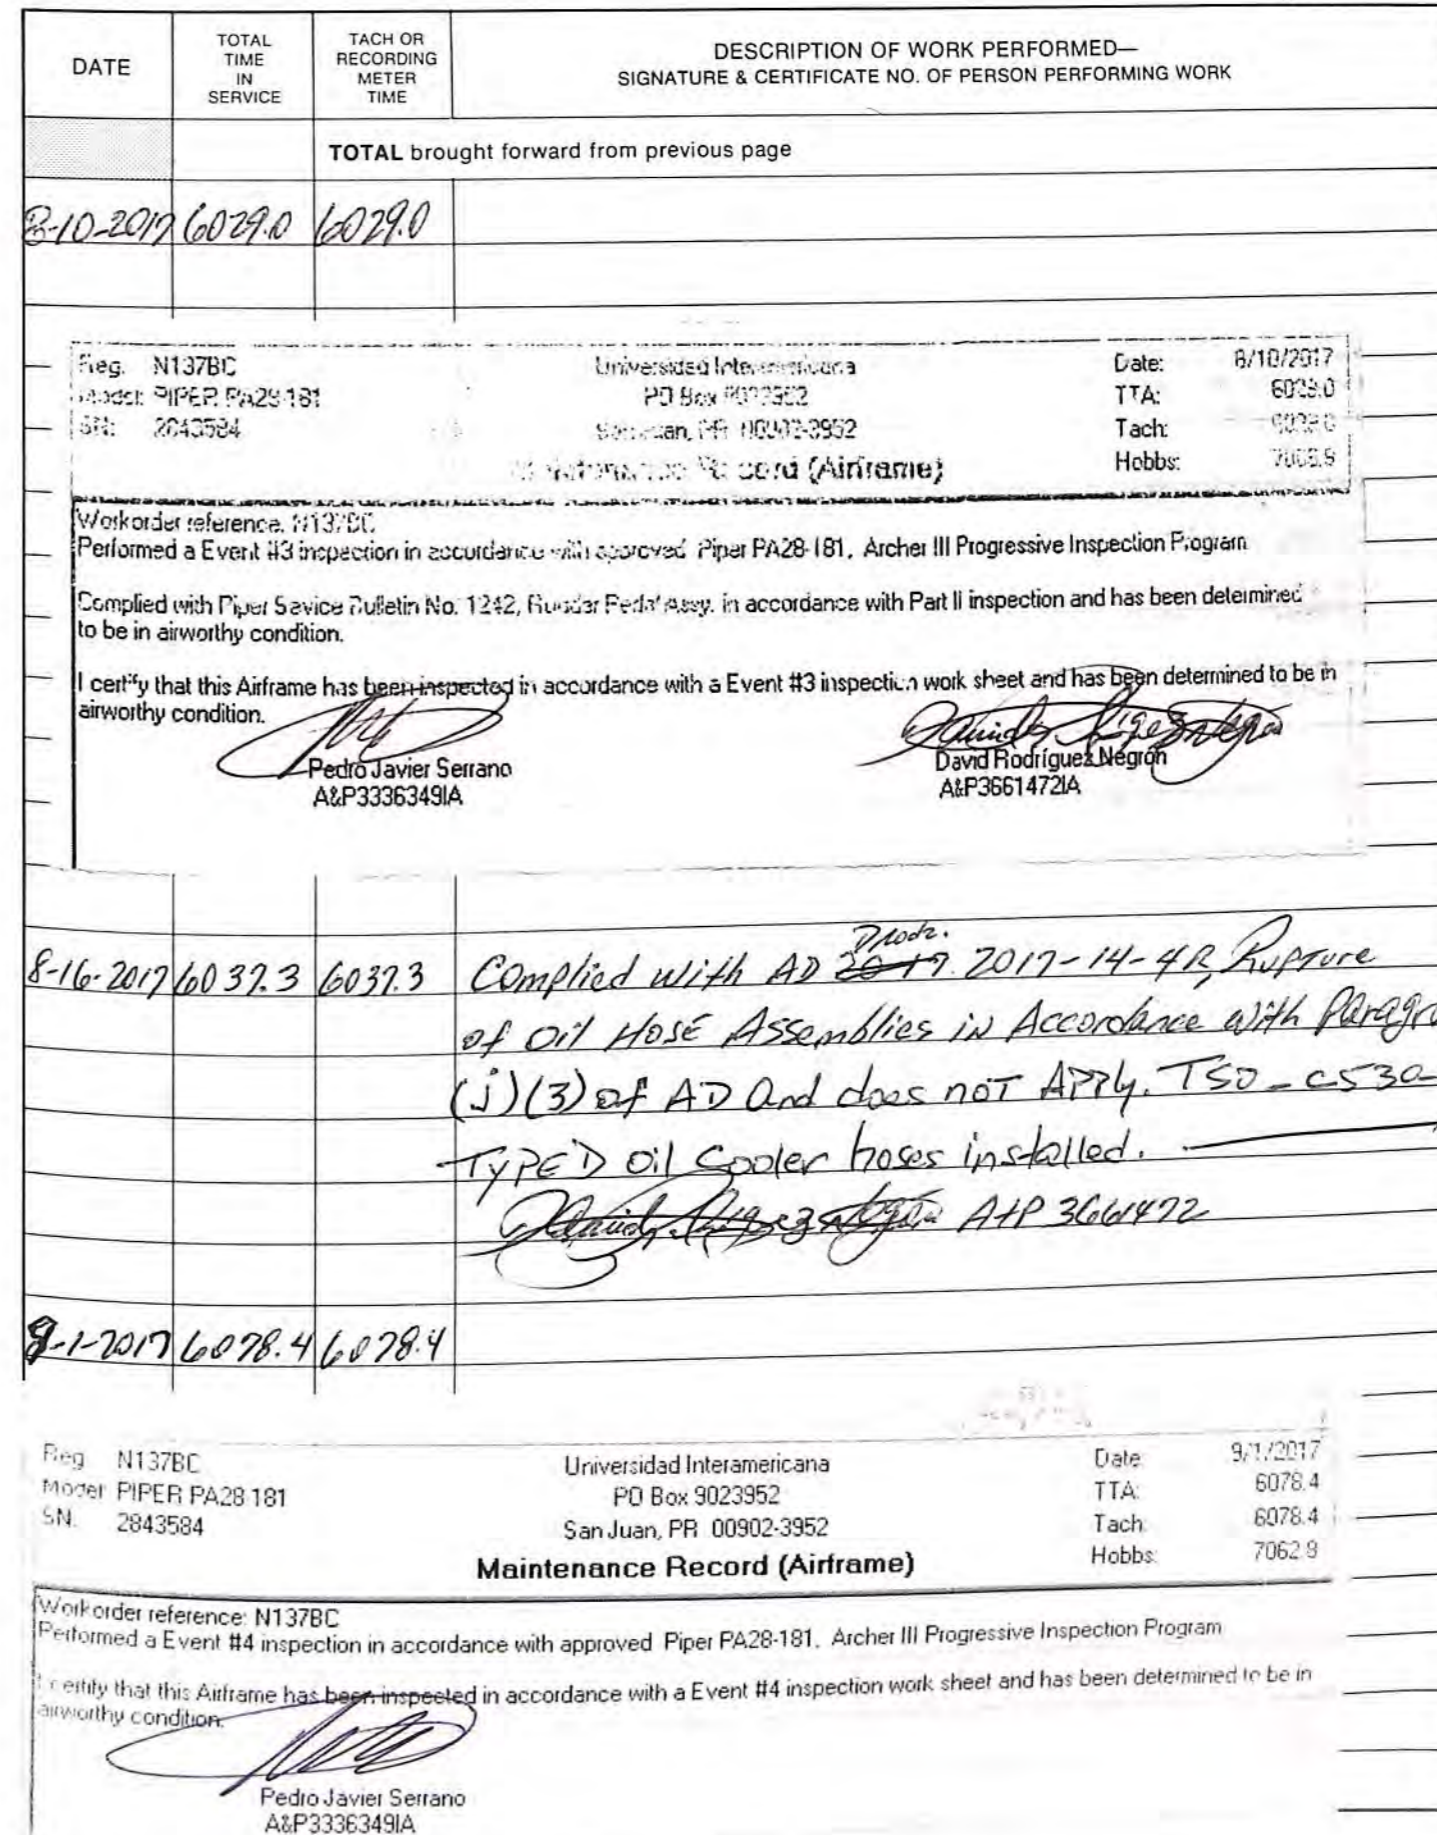 DATE
TOTAL TIME IN SERVICE
TACH OR RECORDING METER TIME
DESCRIPTION OF WORK PERFORMED—
SIGNATURE & CERTIFICATE NO. OF PERSON PERFORMING WORK
TOTAL brought forward from previous page
8-10-2017 6029.0 6029.0
Reg. N137BC Universidad Interamericana Date: 8/10/2017
Model: PIPER PA28-181 PO Box TTA:
SN: 2843584 San Juan, PR 00902-3952 Tach:
Maintenance Record (Airframe) Hobbs:
Workorder reference: N137BC
Performed a Event #3 inspection in accordance with approved Piper PA28-181, Archer III Progressive Inspection Program
Complied with Piper Sevice Bulletin No. 1242, Rudder Pedal Assy. in accordance with Part II inspection and has been determined
to be in airworthy condition.
I certify that this Airframe has been inspected in accordance with a Event #3 inspection work sheet and has been determined to be in
airworthy condition.
Pedro Javier Serrano David Rodríguez Negrón
A&P3336349IA A&P3661472IA
8-16-2017 6037.3 6037.3 Complied with AD 2017-14-4R, Rupture
of oil HOSE Assemblies in Accordance with Paragra
(j)(3) of AD and does not APPly. TSO-C53a-
TYPE D oil Cooler hoses installed.
A+P 3661472
9-1-2017 6078.4 6078.4
Reg N137BC Universidad Interamericana Date: 9/1/2017
Model PIPER PA28-181 PO Box 9023952 TTA: 6078.4
SN. 2843584 San Juan, PR 00902-3952 Tach: 6078.4
Maintenance Record (Airframe) Hobbs: 7062.9
Workorder reference: N137BC
Performed a Event #4 inspection in accordance with approved Piper PA28-181, Archer III Progressive Inspection Program
I certify that this Airframe has been inspected in accordance with a Event #4 inspection work sheet and has been determined to be in
airworthy condition.
Pedro Javier Serrano
A&P3336349IA